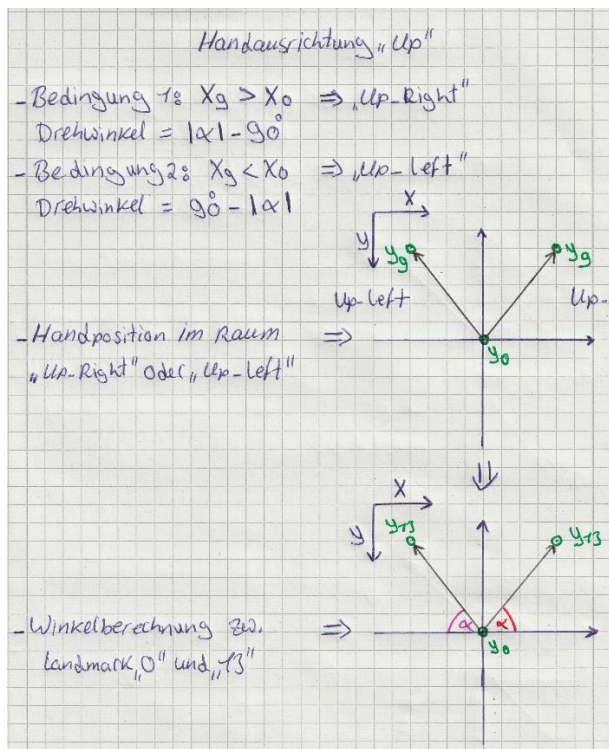 Handausrichtung „Up"
- Bedingung 1: X9 > X0 ⇒ „Up-Right"
Drehwinkel = |α| - 90°
- Bedingung 2: X9 < X0 ⇒ „Up-left"
Drehwinkel = 90° - |α|
X
y
y9
y9
Up-left
Up-
- Handposition im Raum ⇒
„Up-Right" oder „Up-left"
y0
⇓
X
y
y13
y13
- Winkelberechnung zw. ⇒
Landmark „0" und „13"
α
α
y0